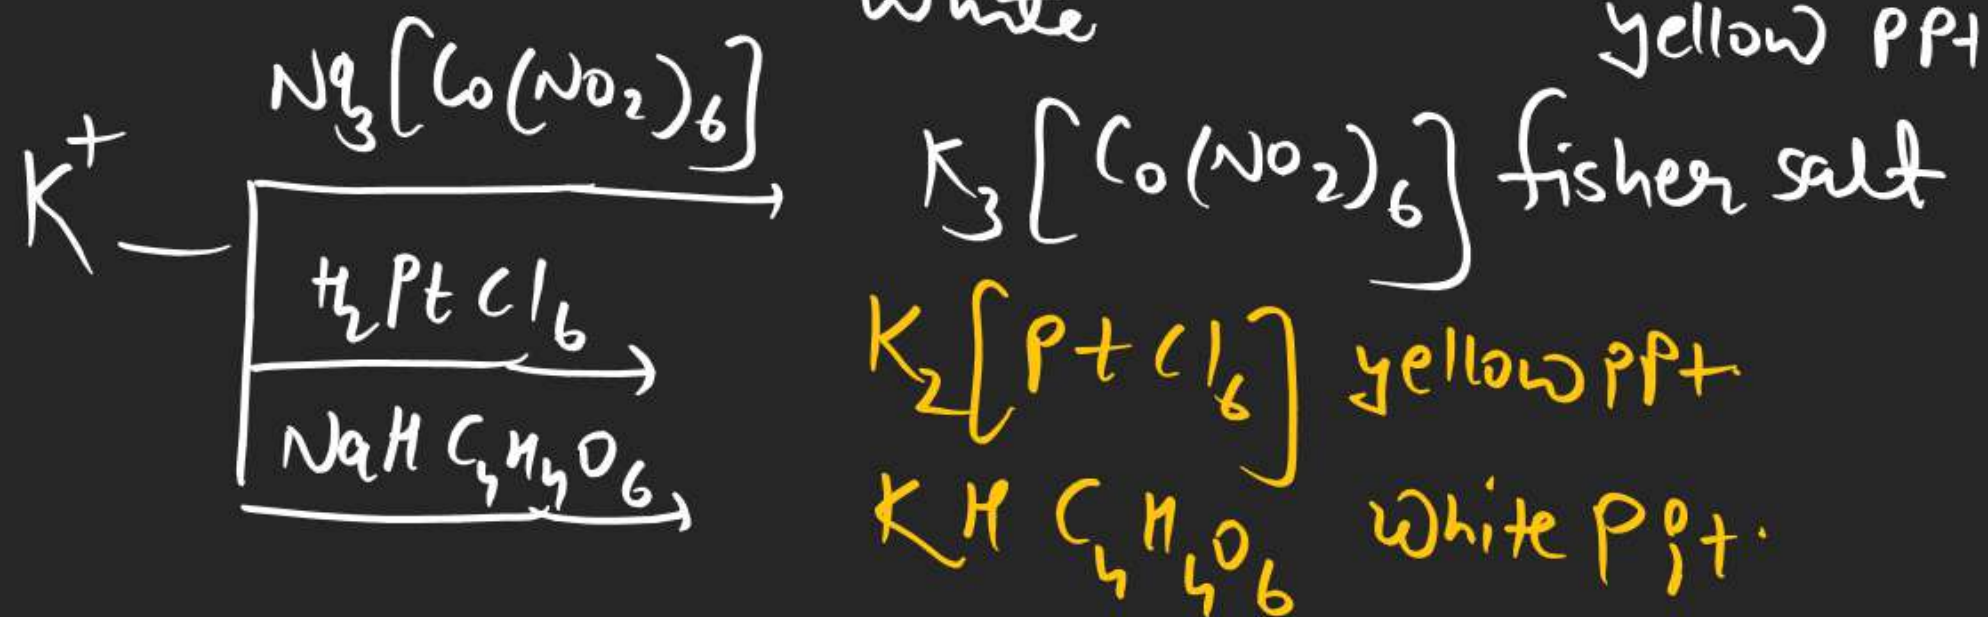 white
yellow ppt
K⁺ Na₃[Co(NO₂)₆] K₃[Co(NO₂)₆] fisher salt
H₂PtCl₆ K₂[PtCl₆] yellow ppt
NaHC₄H₄O₆ KHC₄H₄O₆ white ppt.